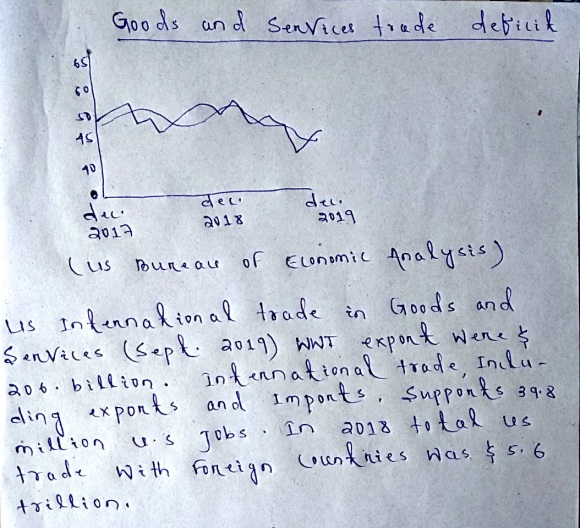 Goods and Services trade deficit
65
60
50
45
40
0
dec. 2017
dec. 2018
dec. 2019
(US Bureau of Economic Analysis)
US International trade in Goods and
Services (Sept. 2019) WWT export were $
206. billion. International trade, Inclu-
ding exports and Imports, Supports 39.8
million U.S Jobs. In 2018 total US
trade with Foreign Countries was $ 5.6
trillion.